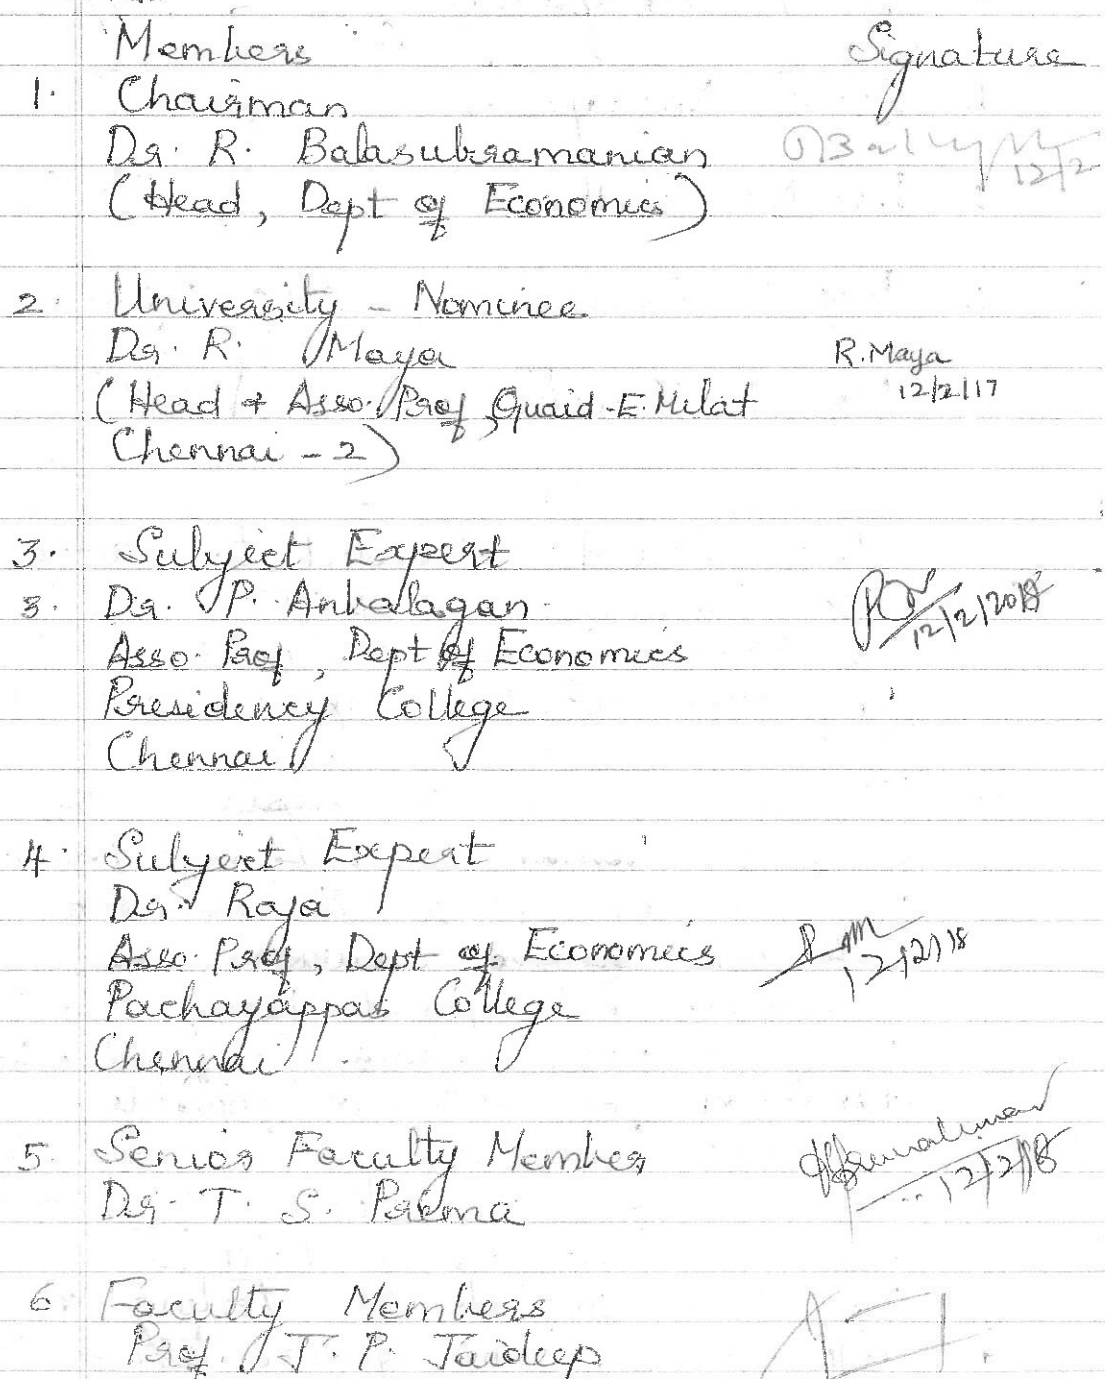 Members Signature
1. Chairman
Dr. R. Balasubramanian
12/2
(Head, Dept of Economics)
2. University - Nominee
Dr. R. Maya R. Maya
(Head + Asso. Prof, Quaid-E. Milat 12/2/17
Chennai - 2)
3. Subject Expert
3. Dr. P. Anbalagan 12/2/2018
Asso. Prof, Dept of Economics
Presidency College
Chennai
4. Subject Expert
Dr. Raja
Asso. Prof, Dept of Economics 12/2/18
Pachayappas College
Chennai
5. Senior Faculty Member
Dr. T. S. Prema 12/2/18
6. Faculty Members
Prof. J. P. Jaideep